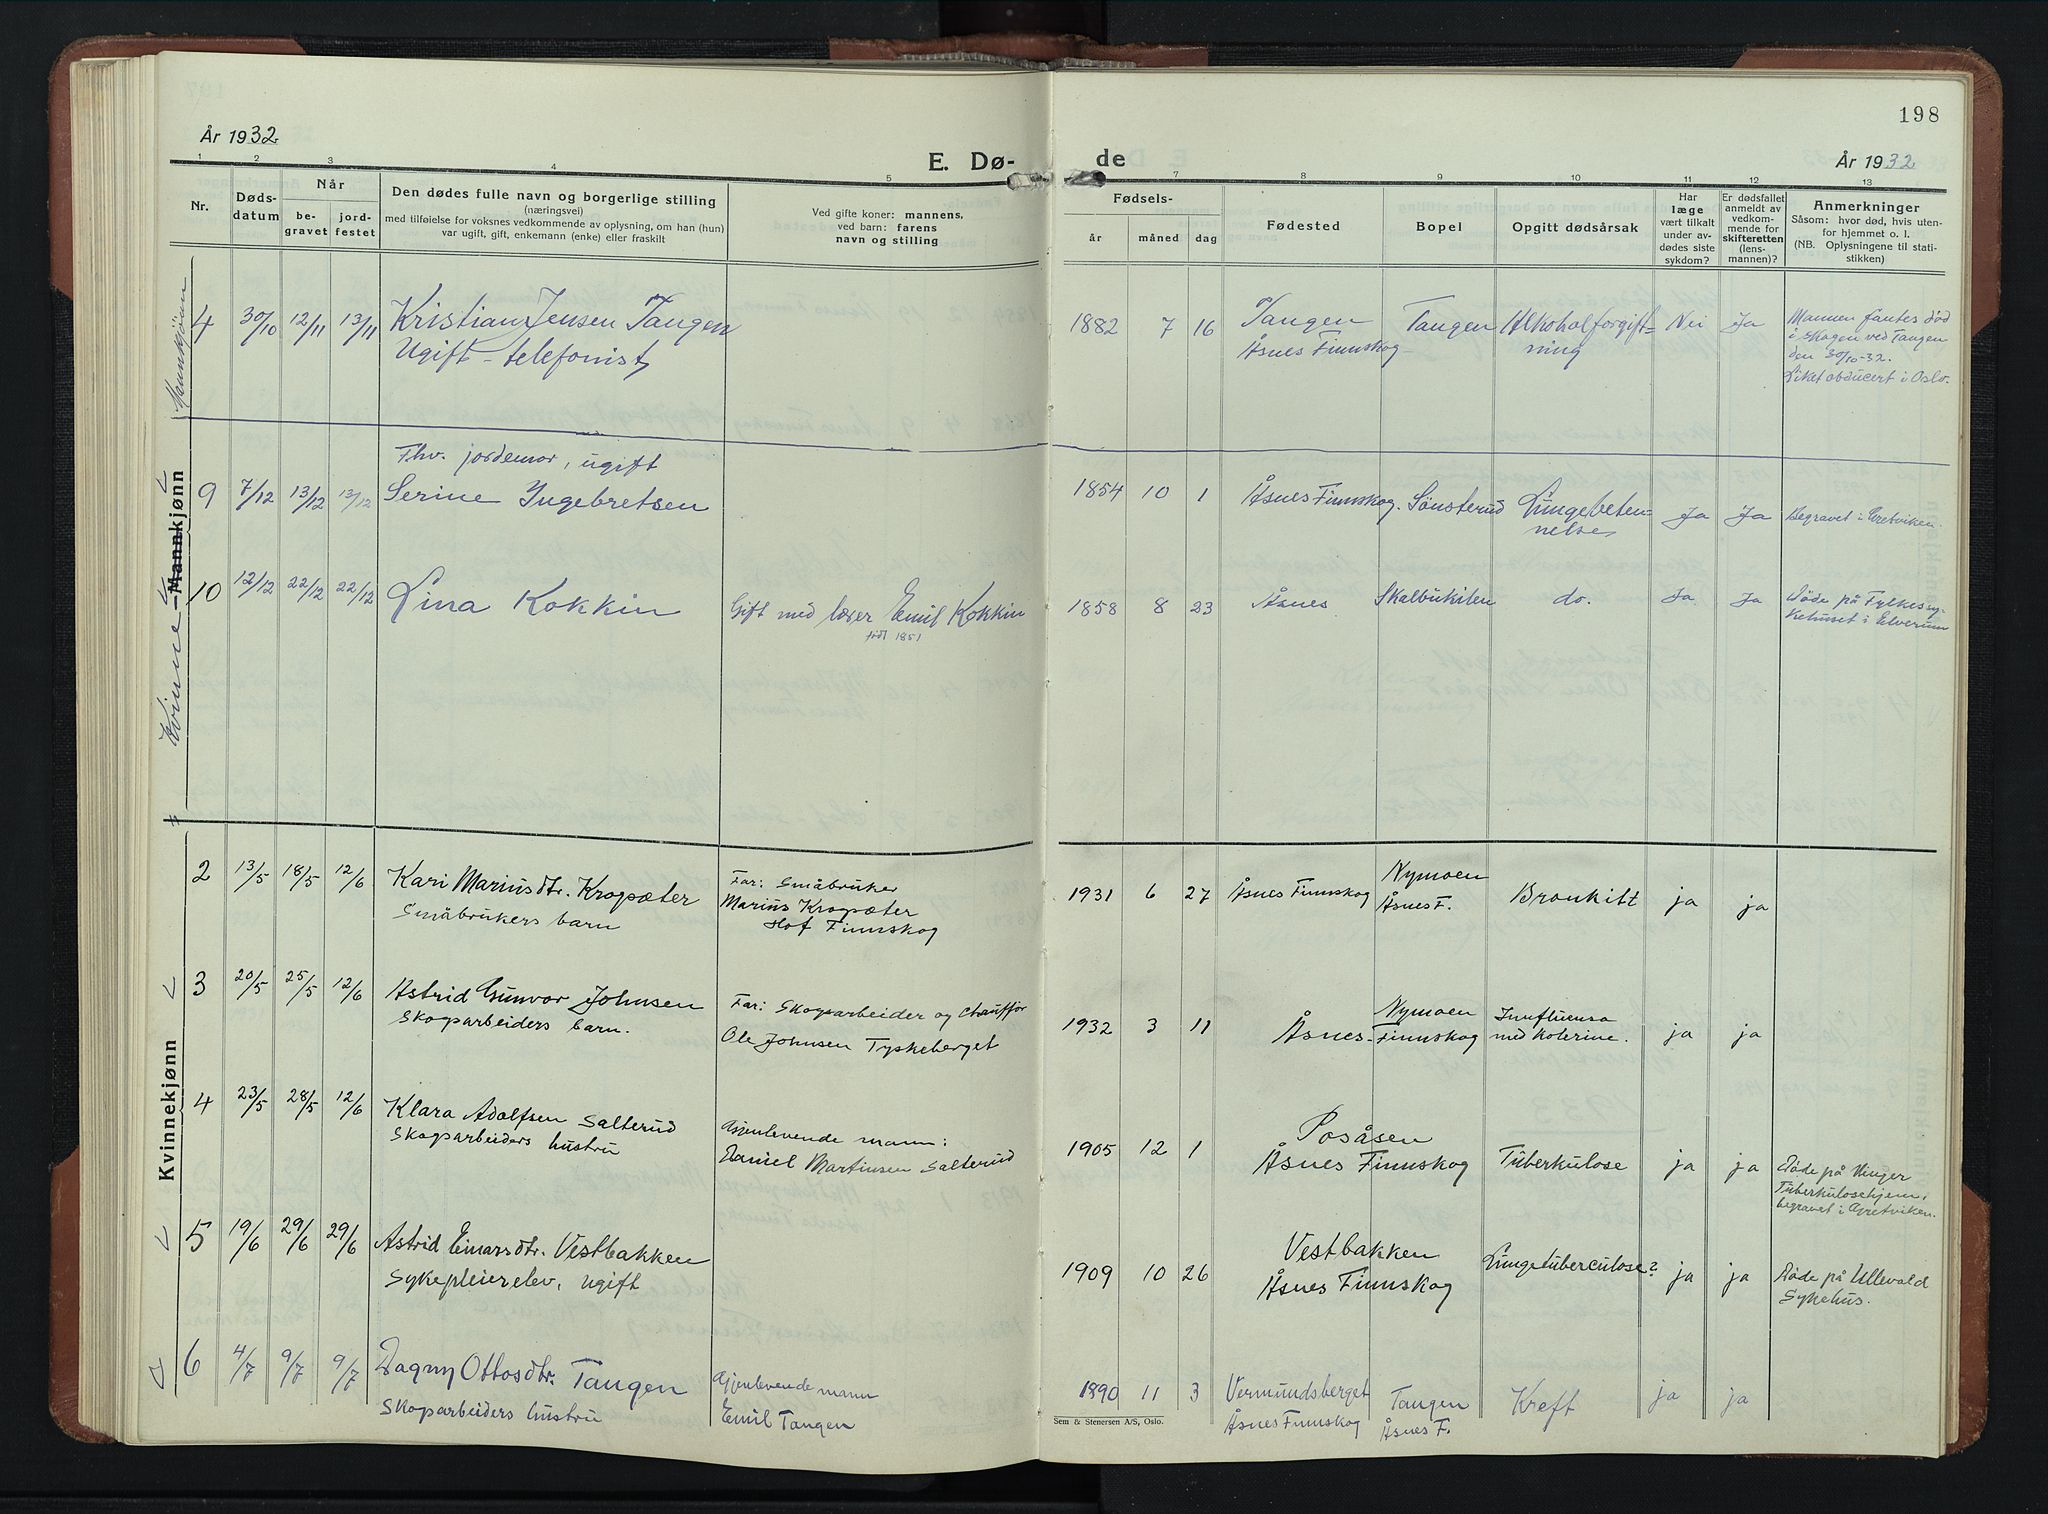 År 1932
E. Dø-
de
År 1932
198
1 2 3 4 5 7 8 9 10 11 12 13
Nr.
Døds-
datum
Når
be-
gravet
jord-
festet
Den dødes fulle navn og borgerlige stilling
(næringsvei)
med tilføielse for voksnes vedkommende av oplysning, om han (hun)
var ugift, gift, enkemann (enke) eller fraskilt
Ved gifte koner: mannens,
ved barn: farens
navn og stilling
Fødsels-
år måned dag
Fødested
Bopel
Opgitt dødsårsak
Har
læge
vært tilkalt
under av-
dødes siste
sykdom?
Er dødsfallet
anmeldt av
vedkom-
mende for
skifteretten
(lens-
mannen)?
Anmerkninger
Såsom: hvor død, hvis uten-
for hjemmet o. l.
(NB. Oplysningene til stati-
stikken)
Mannkjønn
4 30/10 12/11 13/11 Kristian Jensen Tangen
Ugift - telefonist
1882 7 16 Tangen
Åsnes Finnskog
Tangen
Alkoholforgift-
ning
Nei Ja
Mannen fantes død
i skogen ved Tangen
den 30/10-32.
Liket obducert i Oslo.
Kvinne-Mannkjønn
Fhv. jordemor, ugift
9 7/12 13/12 13/12 Serine Ingebretsen
1854 10 1 Åsnes Finnskog. Sønsterud Lungebeten-
nelse
Ja Ja Begravet i Gretviken.
10 12/12 22/12 22/12 Lina Kokkin
Gift med læger Emil Kokkin
født 1851
1858 8 23 Åsnes Skalbukilen do. Ja Ja Døde på Fylkessy-
kehuset i Elverum
Kvinnekjønn
2 13/5 18/5 12/6 Kari Mariusdtr. Krogsæter
Småbrukers barn
Far: Småbruker
Marius Krogsæter
Hof Finnskog
1931 6 27 Åsnes Finnskog
Nymoen
Åsnes F.
Bronkitt ja ja
3 20/5 25/5 12/6 Astrid Gunvor Johnsen
Skogsarbeiders barn.
Far: Skogsarbeider og chauffør
Ole Johnsen Tyskeberget
1932 3 11 Åsnes-
Nymoen
Finnskog
Innfluensa
med kolerine.
ja ja
4 23/5 28/5 12/6 Klara Adolfsen Salterud
Skogsarbeiders hustru
Gjenlevende mann:
Daniel Martinsen Salterud
1905 12 1 Posåsen
Åsnes Finnskog
Tuberkulose ja ja
Døde på Vinger
Tuberkulosehjem,
begravet i Gretviken.
5 19/6 29/6 29/6 Astrid Einarsdtr. Vestbakken
Sykepleierelev, ugift
1909 10 26 Vestbakken
Åsnes Finnskog
Lungetuberculose? ja ja
Døde på Ullevald
Sykehus.
6 4/7 9/7 9/7 Dagny Ottosdtr. Tangen
Skogsarbeiders hustru
Gjenlevende mann
Emil Tangen
1890 11 3 Vermundsberget
Åsnes Finnskog
Tangen
Åsnes F.
Kreft ja ja
Sem & Stenersen A/S, Oslo.